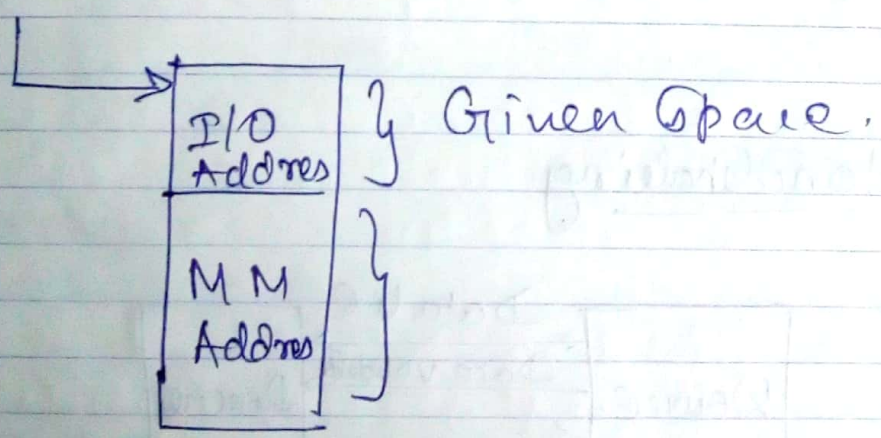 I/O
Addres
Given Space.
MM
Addres